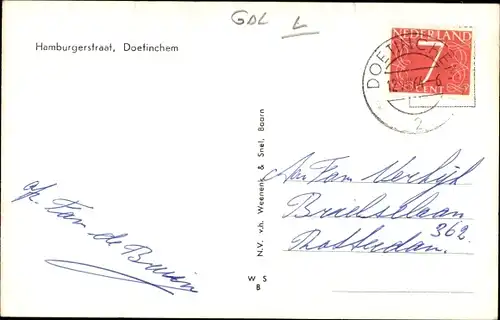 GDL L
Hamburgerstraat, Doetinchem
NEDERLAND
7
CENT
DOETINCHEM
2
N.V. v.h. Weenenk & Snel, Baarn
Aan Fam Verhijk
Brielselaan
362
Rotterdam.
afz. Fam de Bruin
W S
B